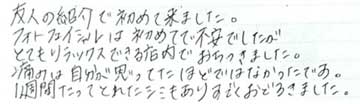 友人の紹介で初めて来ました。
フォトフェイシャルは初めてで不安でしたが
とてもリラックスできる店内でおちつきました。
痛みは自分が思ってたほどではなかったです。
1週間たってとれたシミもありすごくおどろきました。